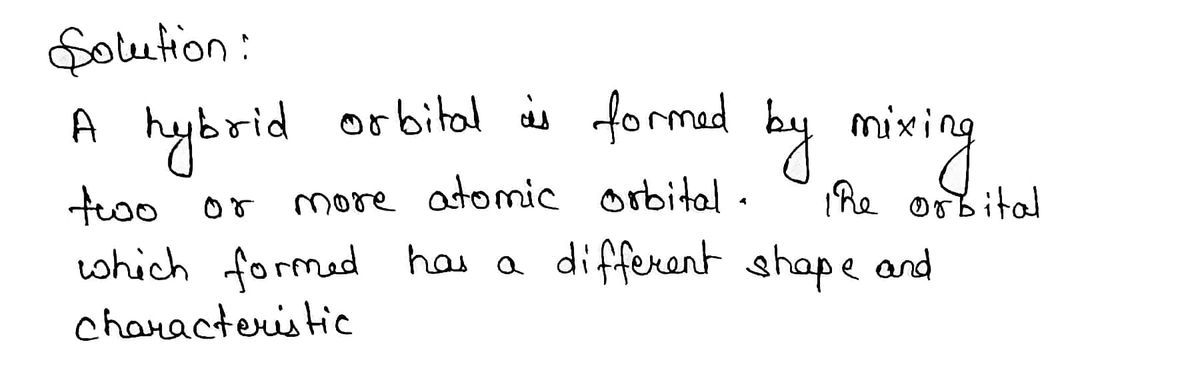 Solution:
A hybrid orbital is formed by mixing
two or more atomic orbital. The orbital
which formed has a different shape and
characteristic